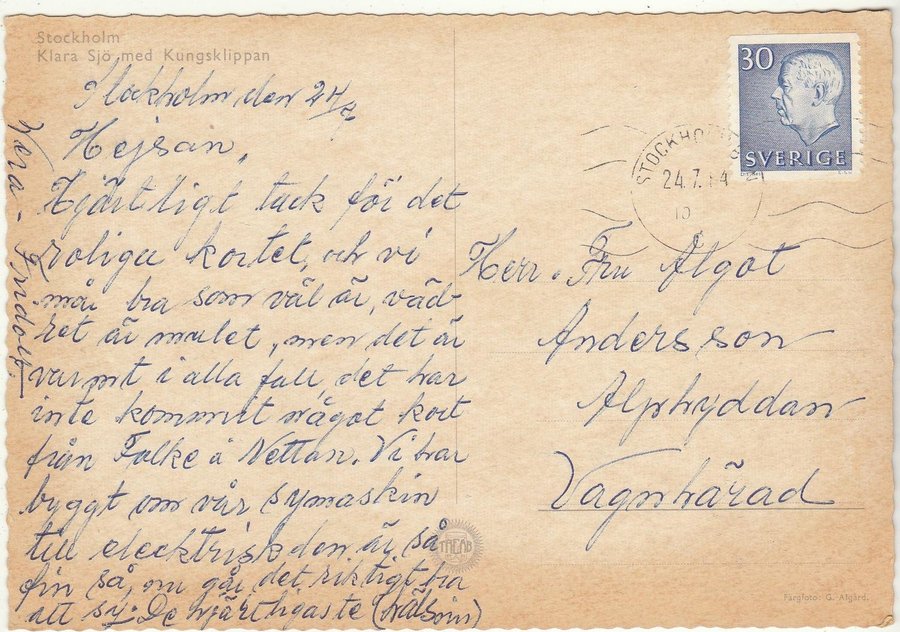 Stockholm
Klara Sjö med Kungsklippan
Stockholm den 24/7
Hejsan,
Hjärtligt tack för det
roliga kortet, och vi
mår bra som väl är, väd-
ret är mulet, men det är
varmt i alla fall, det har
inte kommit något kort
från Folke å Nettan. Vi har
byggt om vår symaskin
till elecktrisk den är så
fin så, nu går det riktigt bra
att sy. De hjärtligaste
Vera - Fridolf
30
SVERIGE
STOCKHOLM
24.7.64
Herr o Fru Algot
Andersson
Alphyddan
Vagnhärad
Färgfoto: G. Algård.